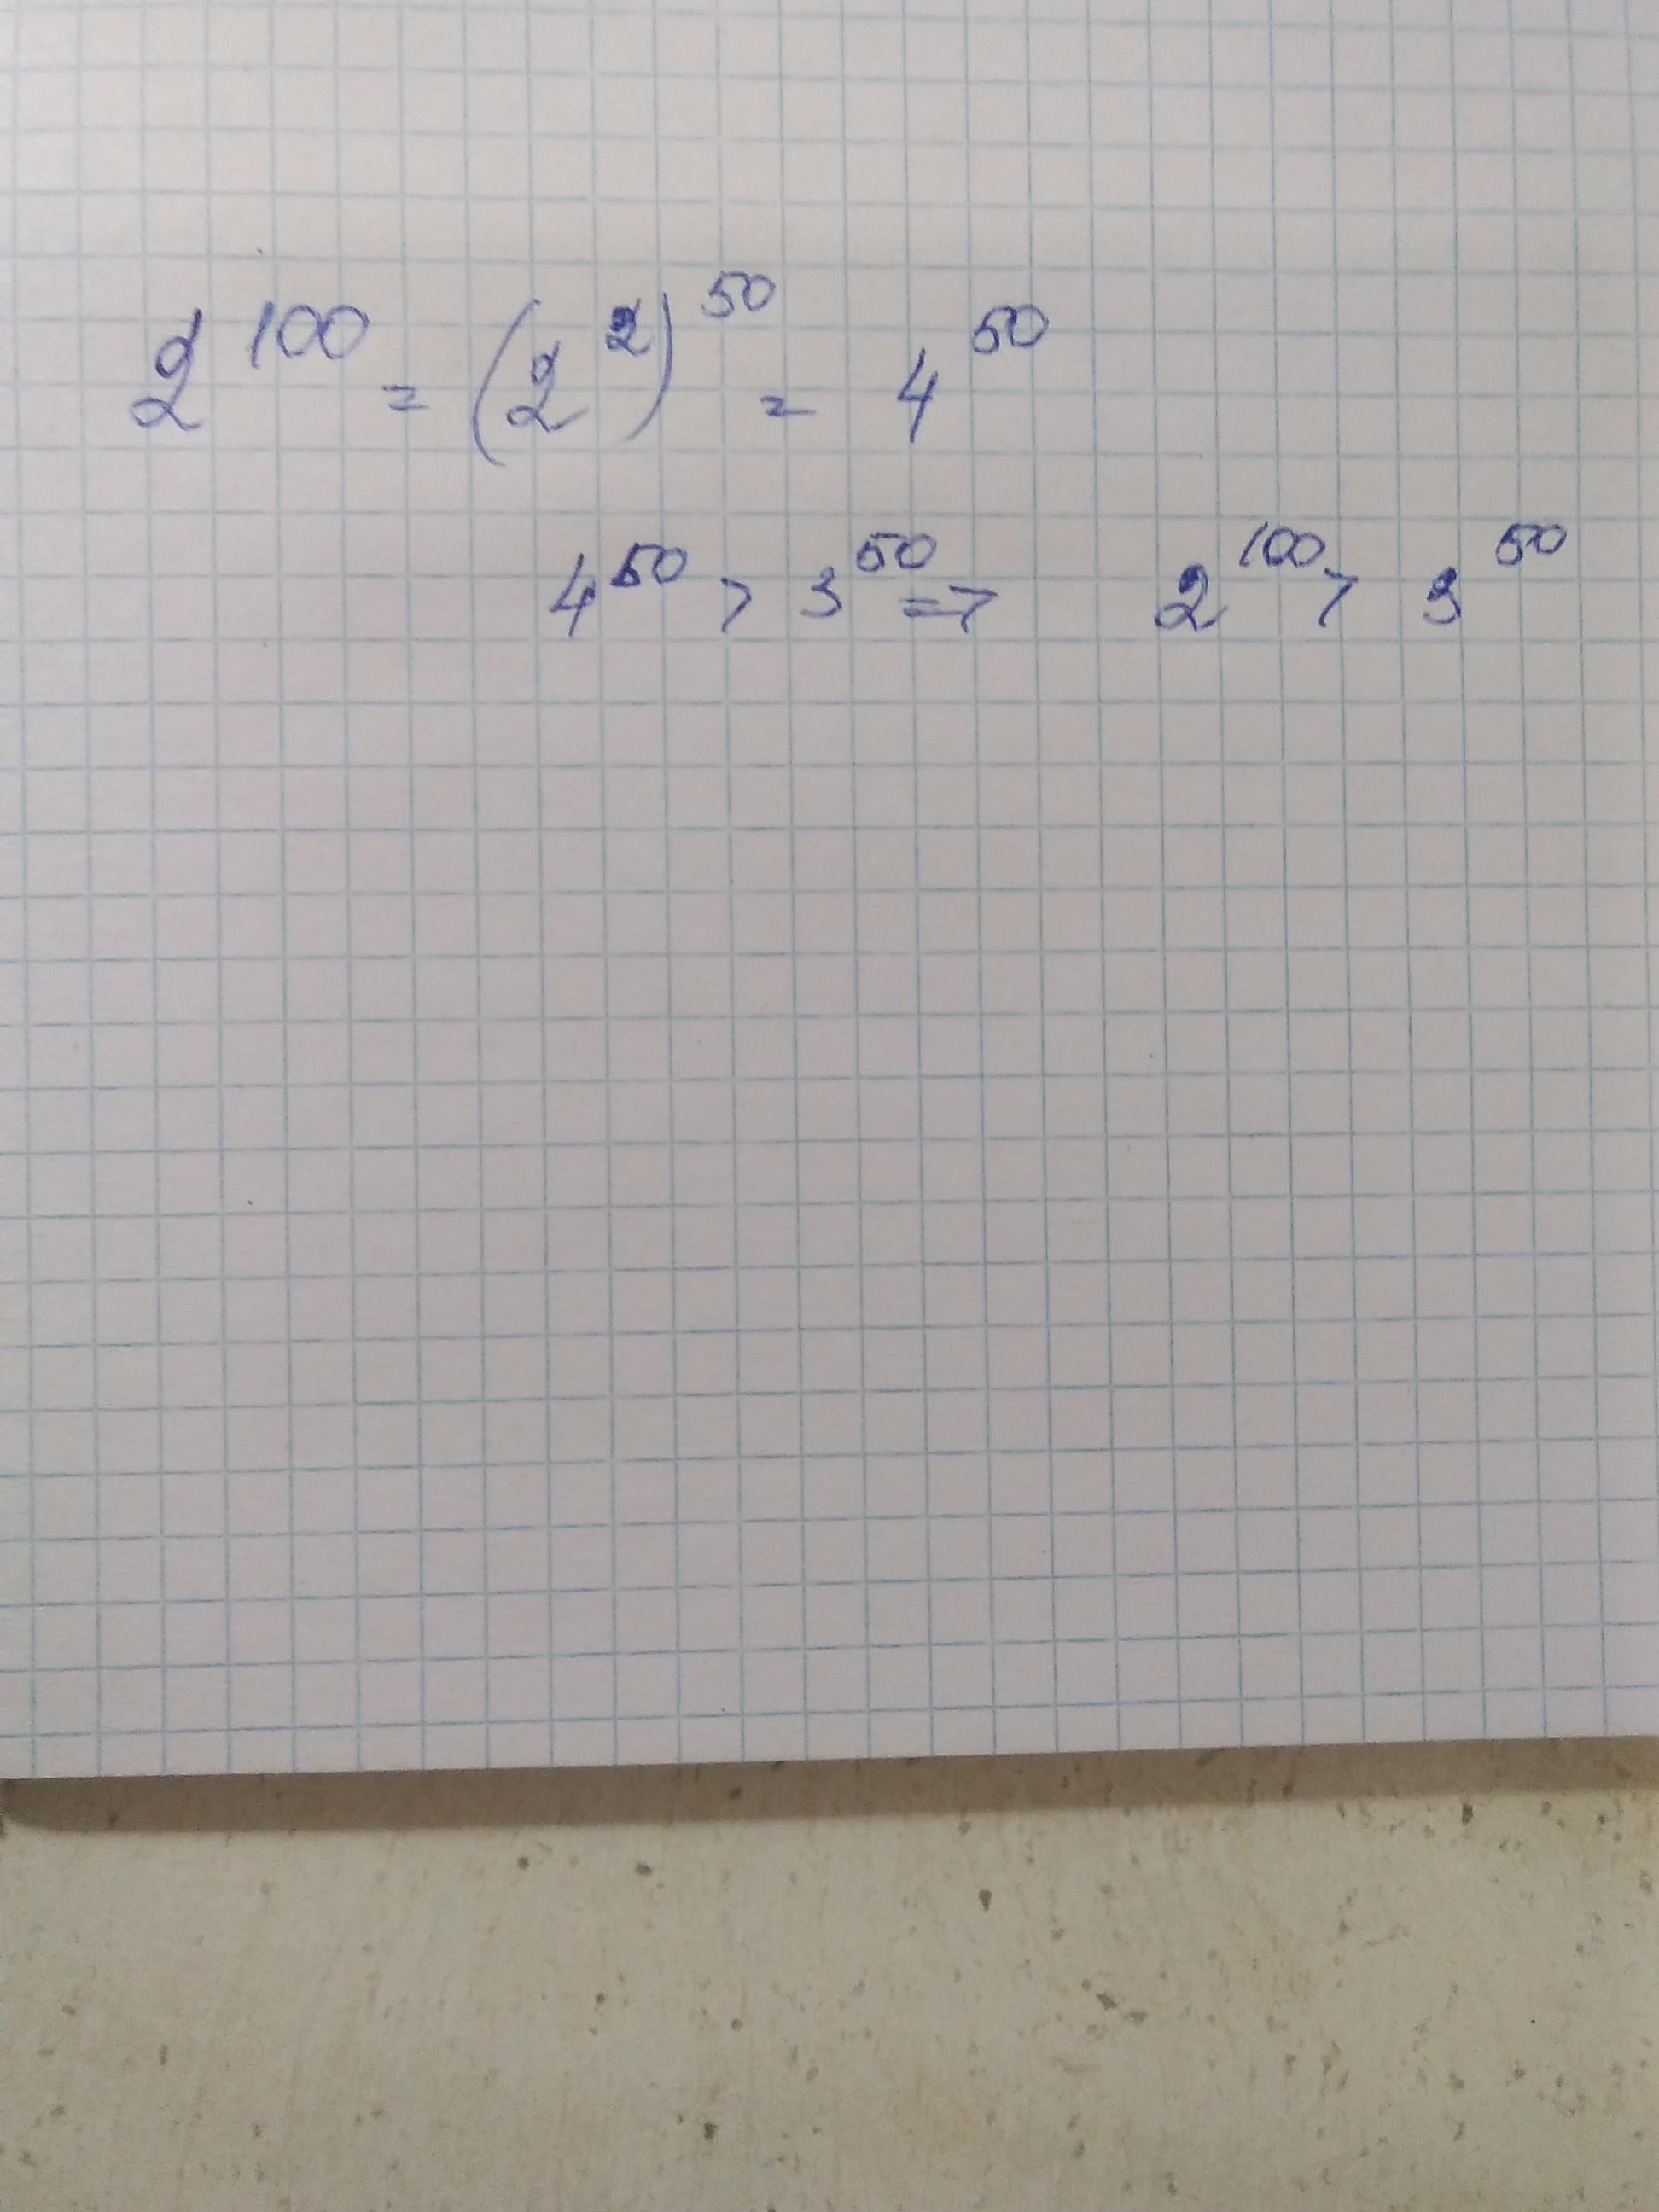 2^100 = (2^2)^50 = 4^50
4^50 > 3^50 => 2^100 > 3^50